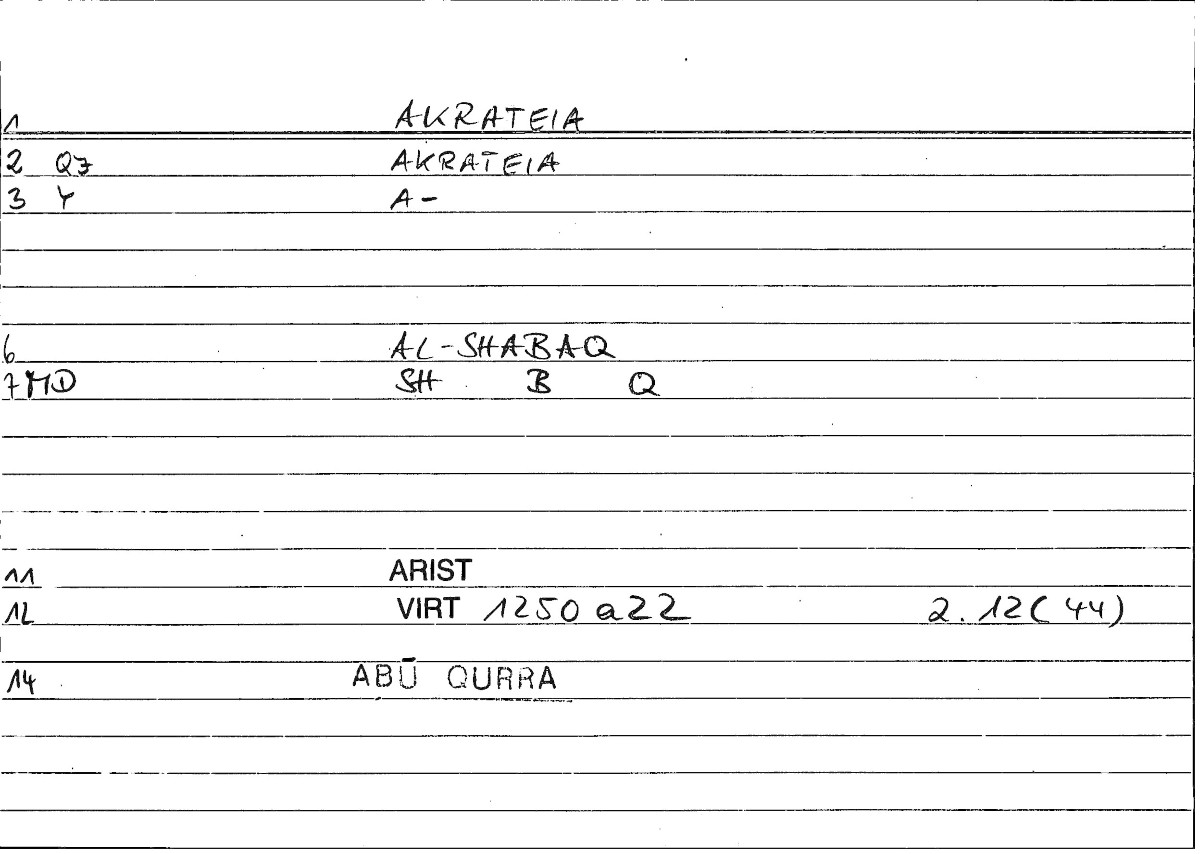 1 AKRATEIA
2 Q7 AKRATEIA
3 Y A-
6 AL-SHABAQ
7 MD SH B Q
11 ARIST
12 VIRT 1250 a22 2.12(44)
14 ABŪ QURRA